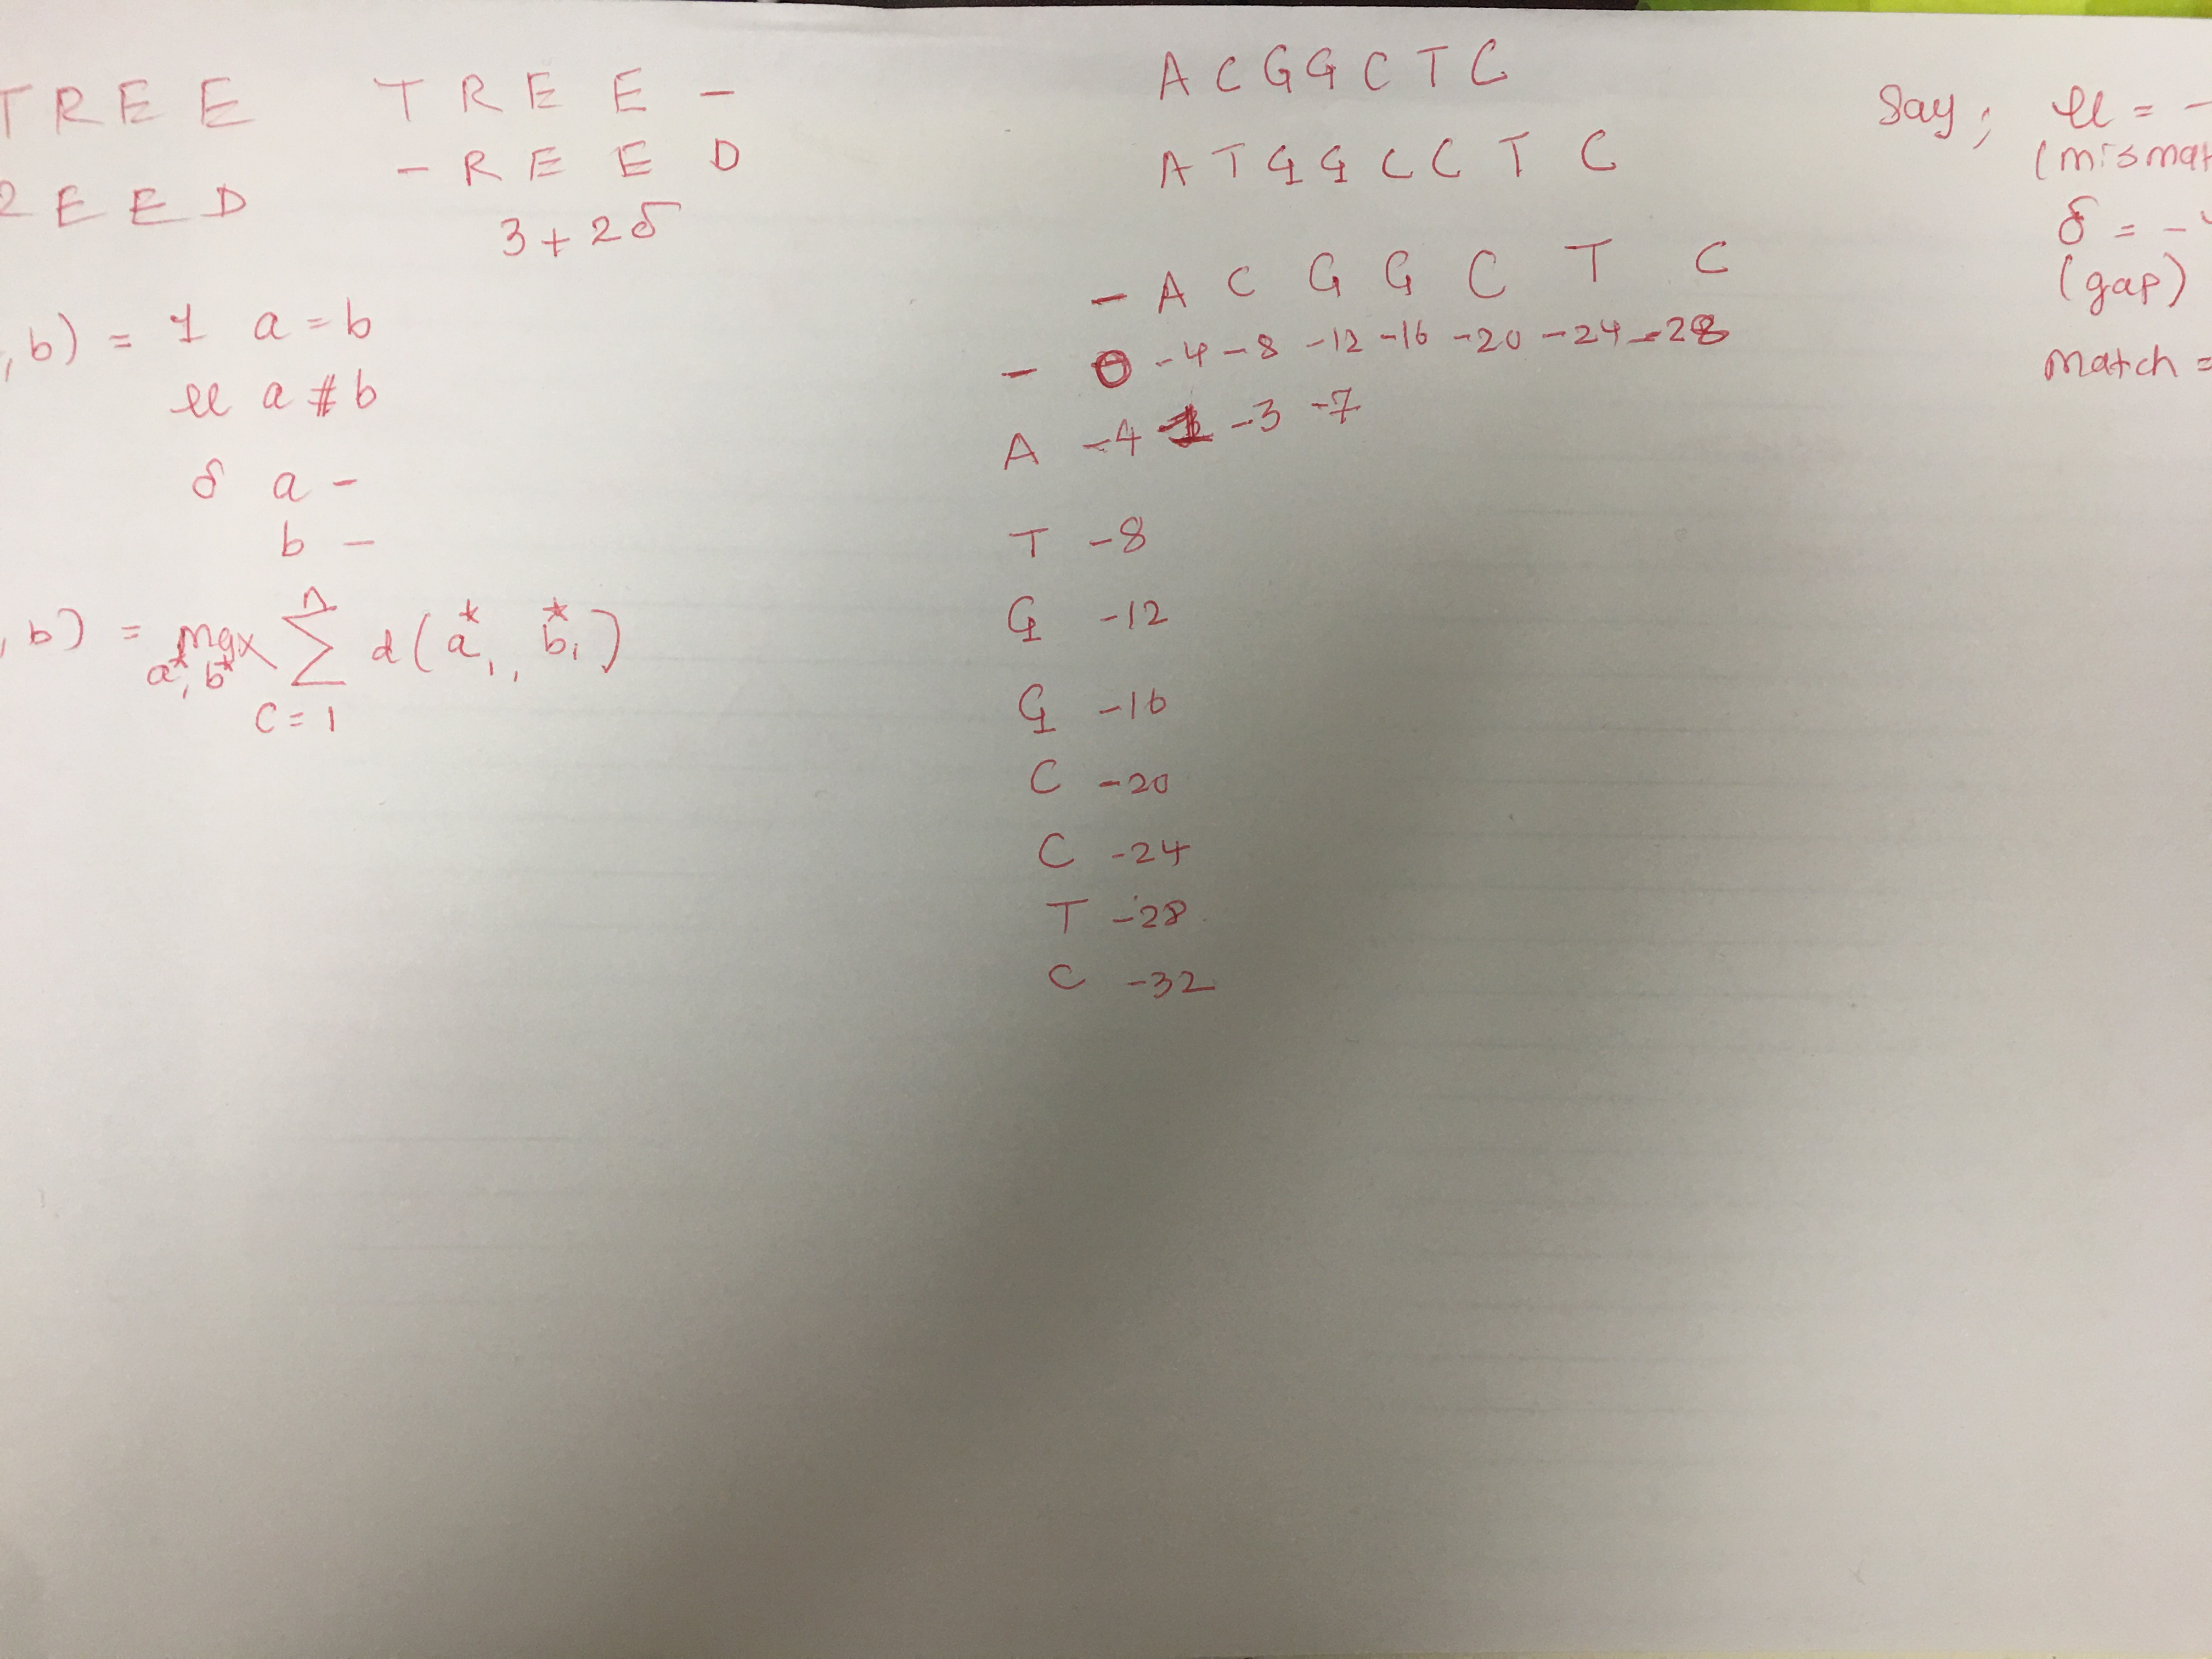 T R E E
E E D
T R E E -
- R E E D
3 + 2 δ
, b) = 1 a = b
μ a ≠ b
δ a -
b -
, b) = max Σ d(a*₁, b*₁)
a*, b* c = 1
A C G G C T C
A T G G C C T C
- A C G G C T C
- 0 -4 -8 -12 -16 -20 -24 -28
A -4 1 -3 -7
T -8
G -12
G -16
C -20
C -24
T -28
C -32
say, μ = -
(mismat
δ = -
(gap)
match =